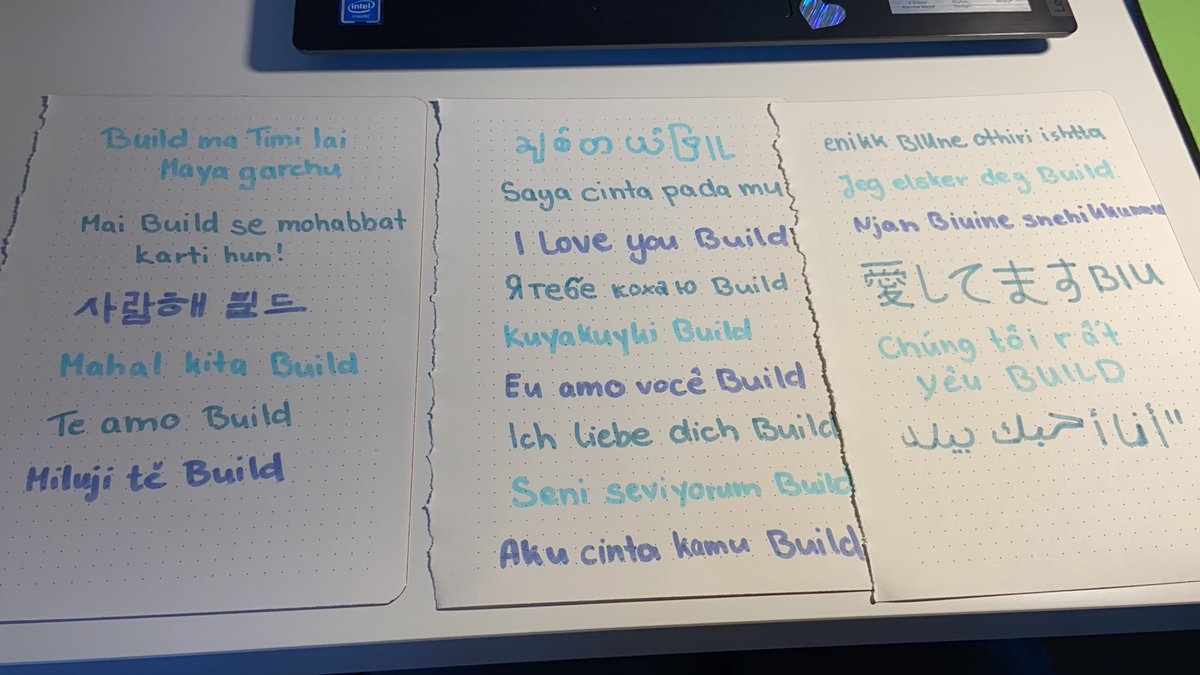 intel
inside
Build ma Timi lai
Maya garchu
Mai Build se mohabbat
karti hun!
사람해 빌드
Mahal kita Build
Te amo Build
Miluji tě Build
ချစ်တယ်ဗြူူL
Saya cinta pada mu
I Love you Build
Я тебе кохаю Build
Kuyakuyki Build
Eu amo você Build
Ich liebe dich Build
Seni seviyorum Build
Aku cinta kamu Build
enikk BIUne othiri ishtta
Jeg elsker deg Build
Njan Biuine snehikkunnu
愛してますBIU
Chúng tôi rất
yêu BUILD
"أنا أحبك بيلد